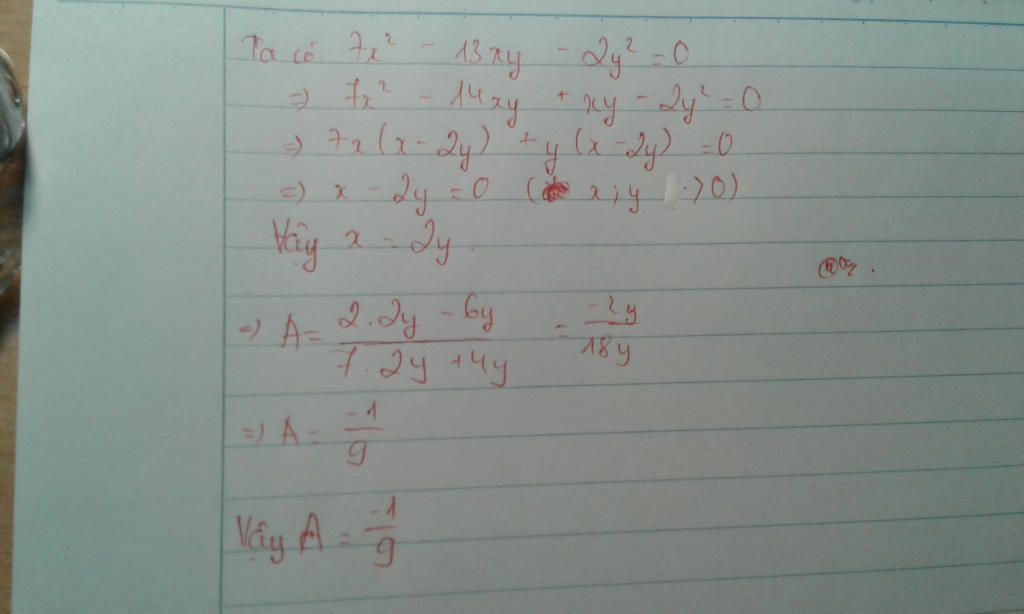 Ta có 7x² - 13xy - 2y² = 0
=> 7x² - 14xy + xy - 2y² = 0
=> 7x(x - 2y) + y(x - 2y) = 0
=> x - 2y = 0 ( x; y > 0)
Vậy x = 2y.
=> A = \frac{2.2y - 6y}{7.2y + 4y} = \frac{-2y}{18y}
=> A = \frac{-1}{9}
Vậy A = \frac{-1}{9}